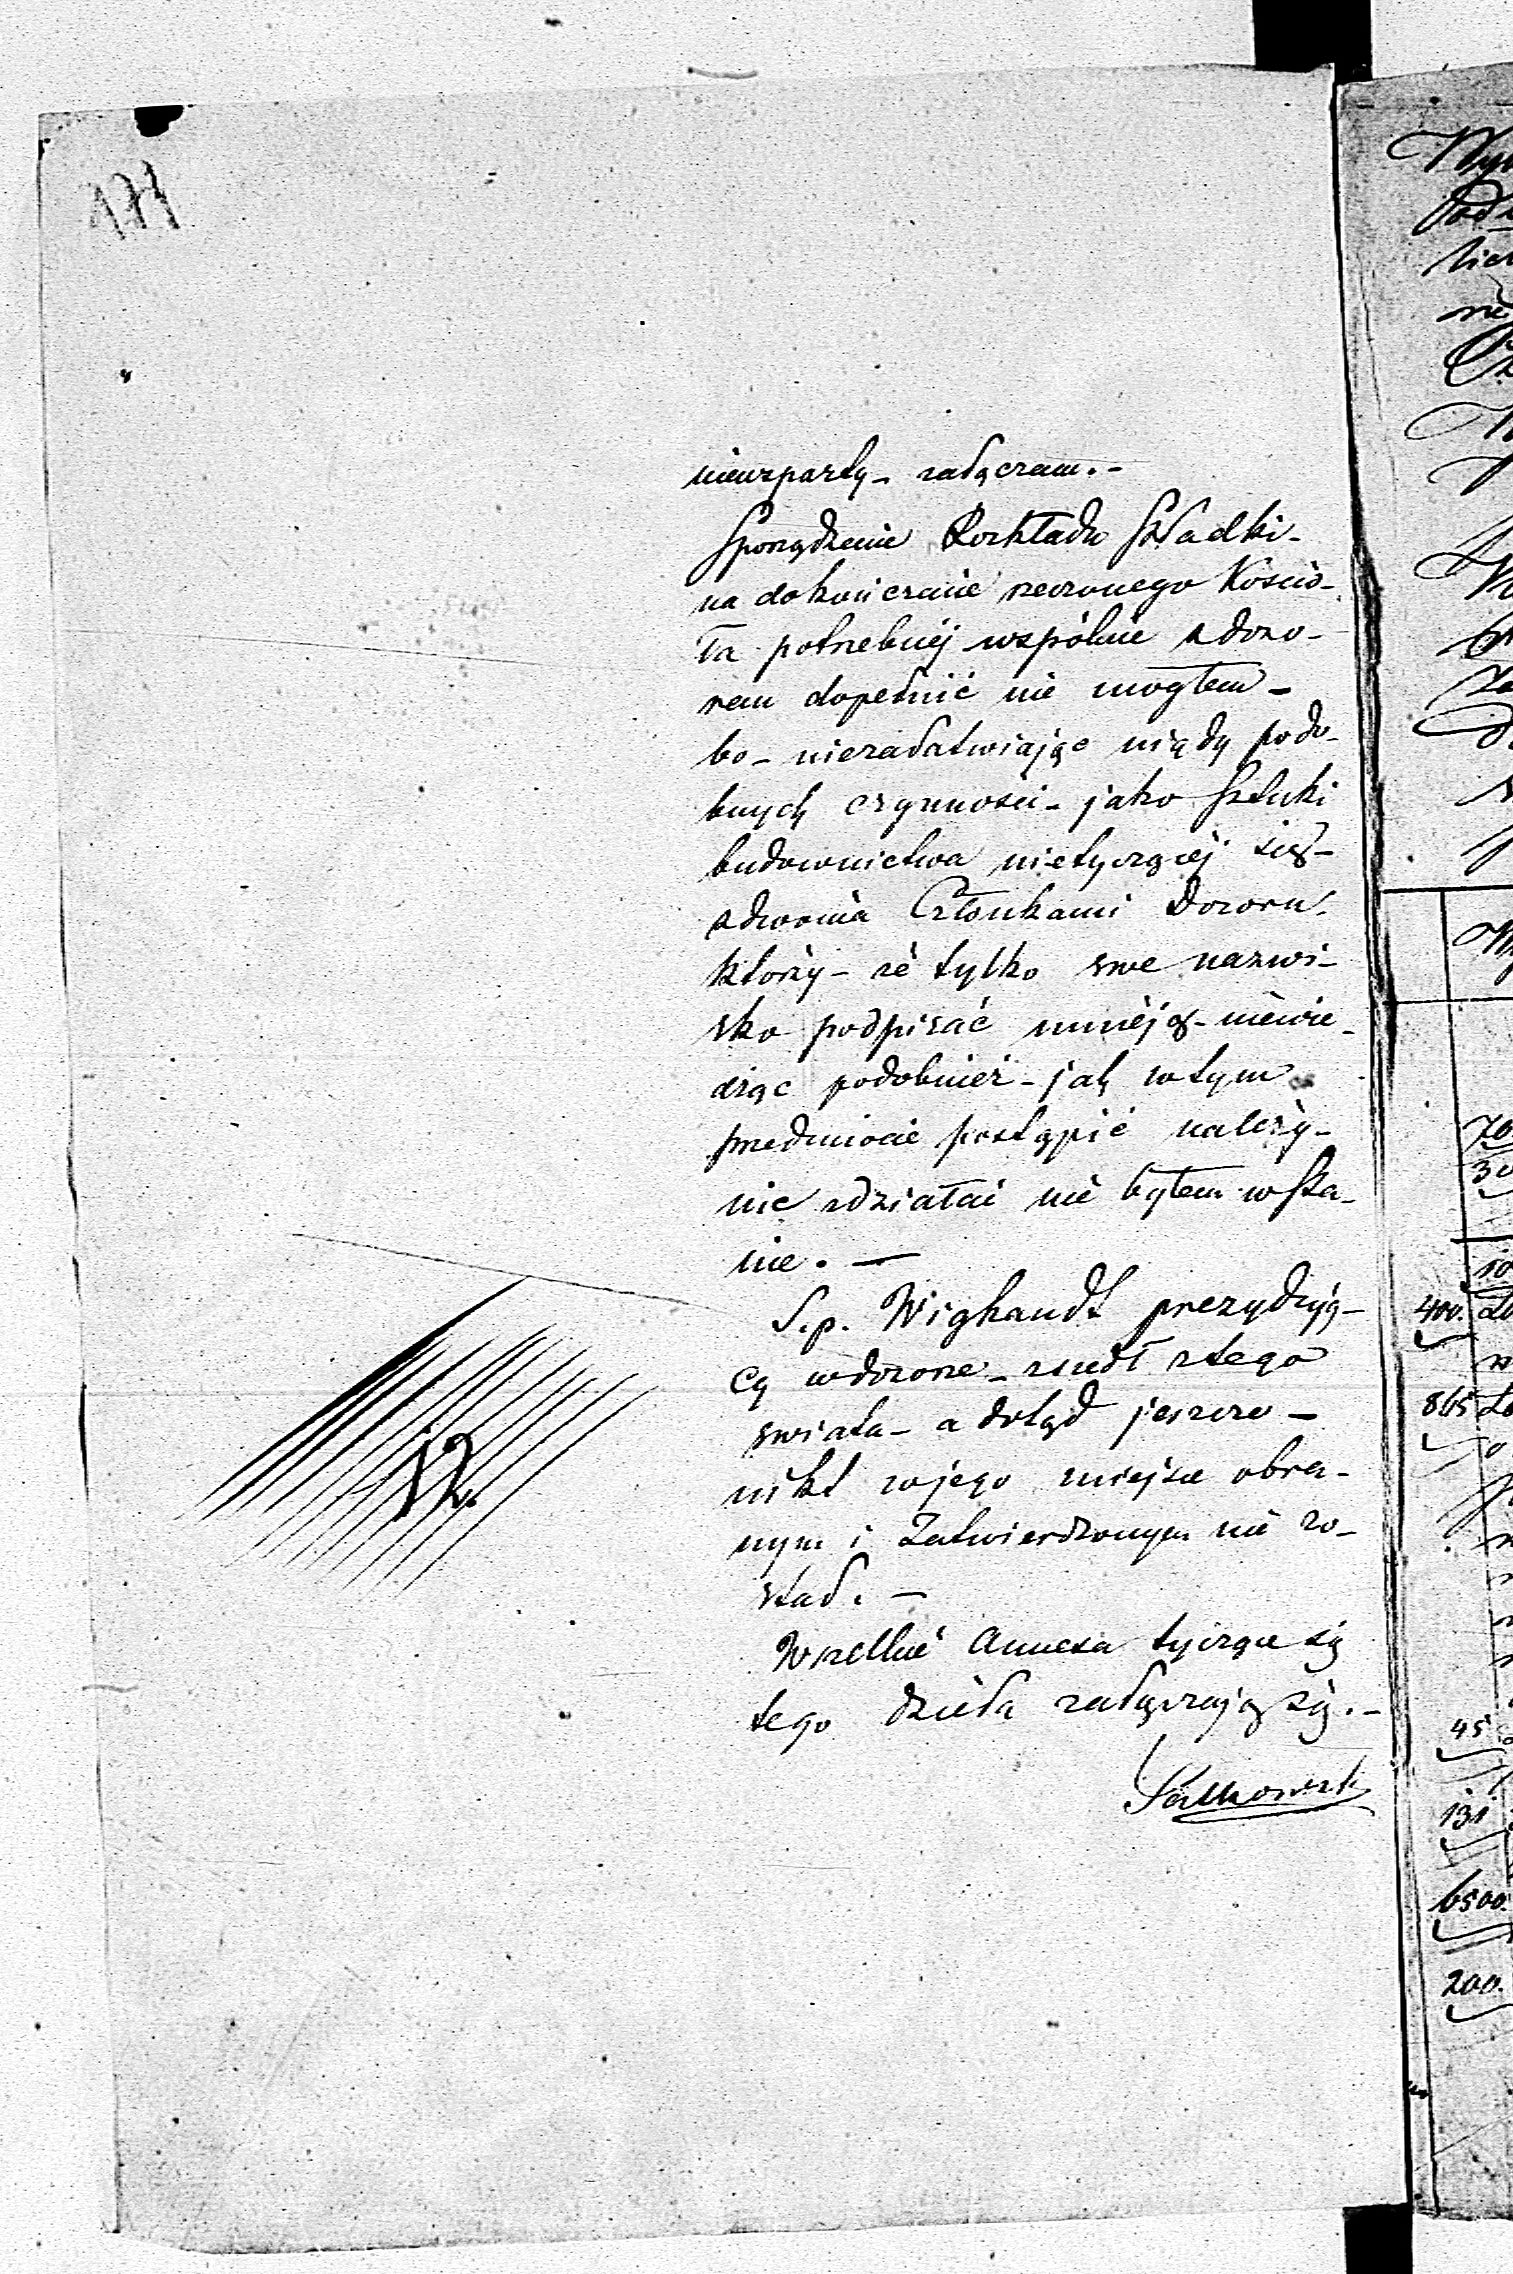 171
niewsparty - załączam. -
Sporządzenie Rozkładu składki -
na dokończenie rzeczonego Kościo-
ła potrzebnéj wspólnie z dozo-
rem dopełnić nie mogłem -
bo - niezałatwiając nigdy podo-
bnych czynności - jako sztuki
budownictwa nietyczącéj się -
z dwoma Członkami Dozoru
którzy - że tylko swe nazwi-
sko podpisać umieją - niewie-
dząc podobnież - jak w tym
przedmiocie postąpić należy -
nic zdziałać nie byłem w sta-
nie. -
S.p. Wighandt prezydują-
cy w dozorze - zszedł z tego
swiata - a dotąd jeszcze -
nikt w jego miejsce obra-
nym i Zatwierdzonym nie zo-
stał. -
Wszelkie Annexa tyczące się
tego dzieła załączają się. -
12.
400.
865
45
131
6500.
200.